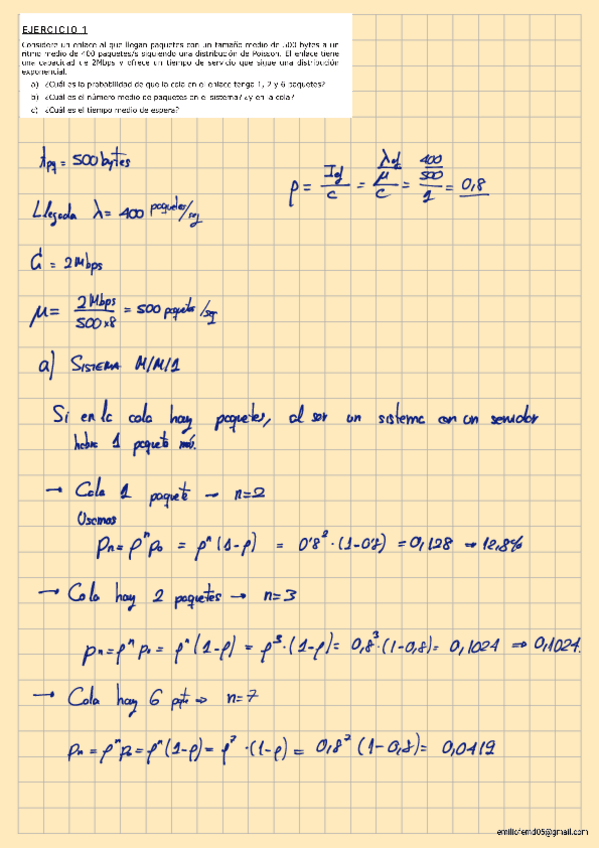 EJERCICIO 1
Considere un enlace al que llegan paquetes con un tamaño medio de 500 bytes a un
ritmo medio de 400 paquetes/s siguiendo una distribución de Poisson. El enlace tiene
una capacidad de 2Mbps y ofrece un tiempo de servicio que sigue una distribución
exponencial.
a) ¿Cuál es la probabilidad de que la cola en el enlace tenga 1, 2 y 6 paquetes?
b) ¿Cuál es el número medio de paquetes en el sistema? ¿y en la cola?
c) ¿Cuál es el tiempo medio de espera?
= 500 bytes
ρ = / c = λ / μ / c = 400 / 500 / 1 = 0,8
Llegada λ = 400 paquetes/seg
C = 2Mbps
μ = 2Mbps / 500×8 = 500 paquetes/seg
a) SISTEMA M/M/1
Si en la cola hay paquetes, al ser un sistema con un servidor
habrá 1 paquete más.
→ Cola 1 paquete → n=2
Usamos
Pn = ρⁿ p₀ = ρⁿ (1-ρ) = 0'8² · (1-0'8) = 0,128 → 12,8%
→ Cola hay 2 paquetes → n=3
Pn = ρⁿ p₀ = ρⁿ (1-ρ) = ρ³ · (1-ρ) = 0,8³ · (1-0,8) = 0,1024 ⇒ 0,1024.
→ Cola hay 6 ⇒ n=7
Pn = ρⁿ p₀ = ρⁿ (1-ρ) = ρ⁷ · (1-ρ) = 0,8⁷ (1-0,8) = 0,0419
emiliofernd05@gmail.com